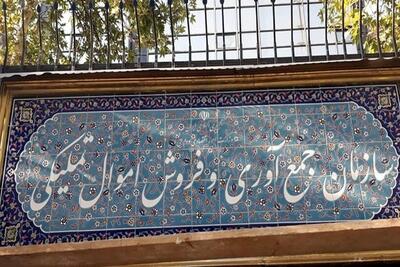 سازمان جمع آوری و فروش اموال تملیکی